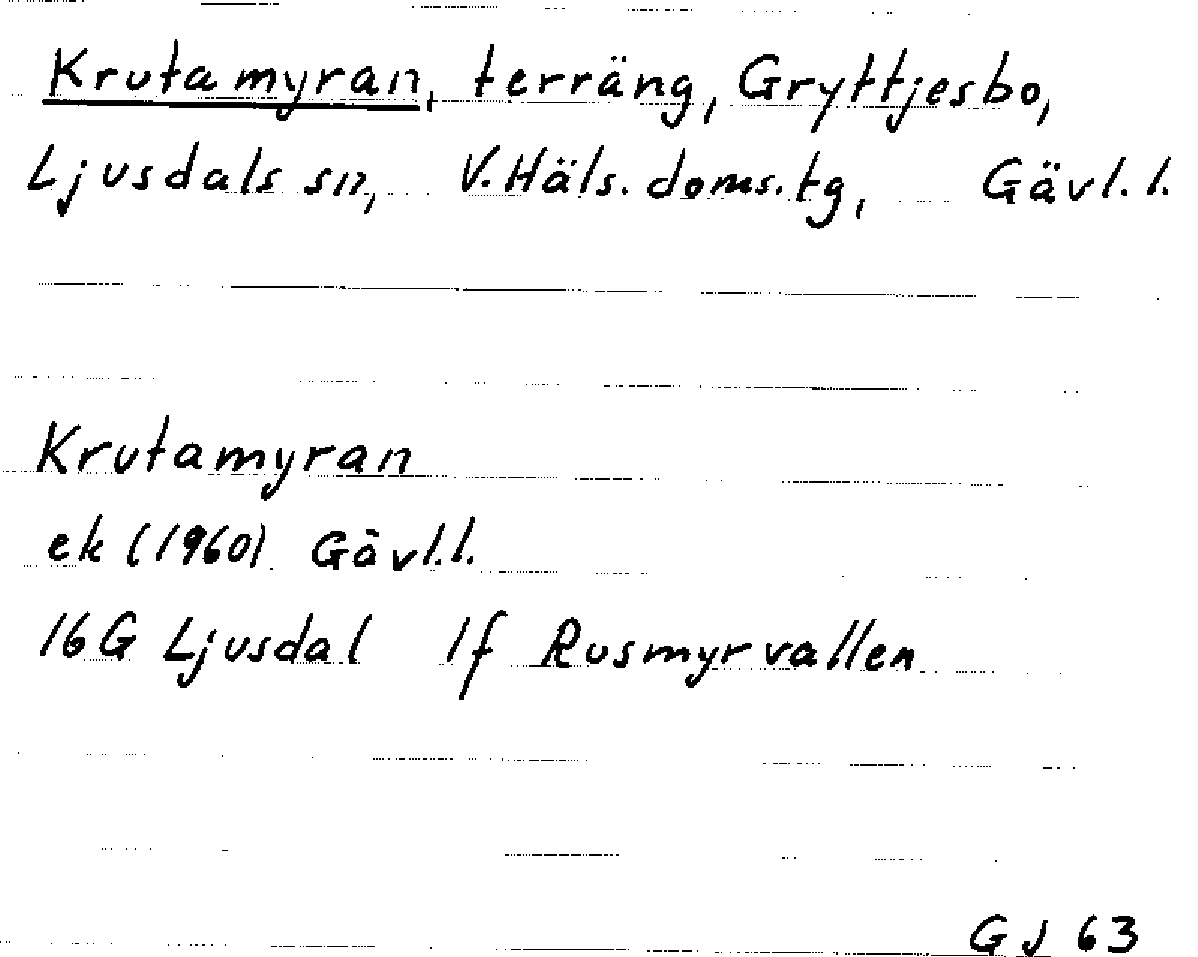 Krutamyran, terräng, Gryttjesbo,
Ljusdals sn, V.Häls.doms.tg, Gävl.l.
Krutamyran
ek (1960) Gävl.l.
16G Ljusdal 1f Rusmyrvallen
GJ 63